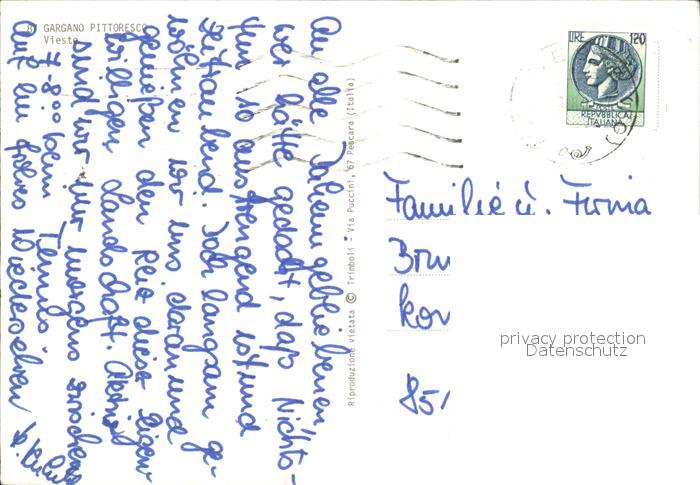 87 GARGANO PITTORESCO
Vieste
An alle Daheimgebliebenen
wer hätte gedacht, daß Nichts-
tun so anstrengend ist und
zeitraubend. Doch langsam ge-
wöhnen wir uns daran und
genießen den Reiz dieser eigen-
willigen Landschaft. Aktiv
sind wir nur morgens zwischen
7-8 00 beim Tennis.
Auf ein frohes Wiedersehen
Riproduzione vietata © Trimboli - Via Puccini, 67 Pescara (Italia)
LIRE 120
REPVBBLICA
ITALIANA
Familie u. Firma
kor
851
privacy protection
Datenschutz